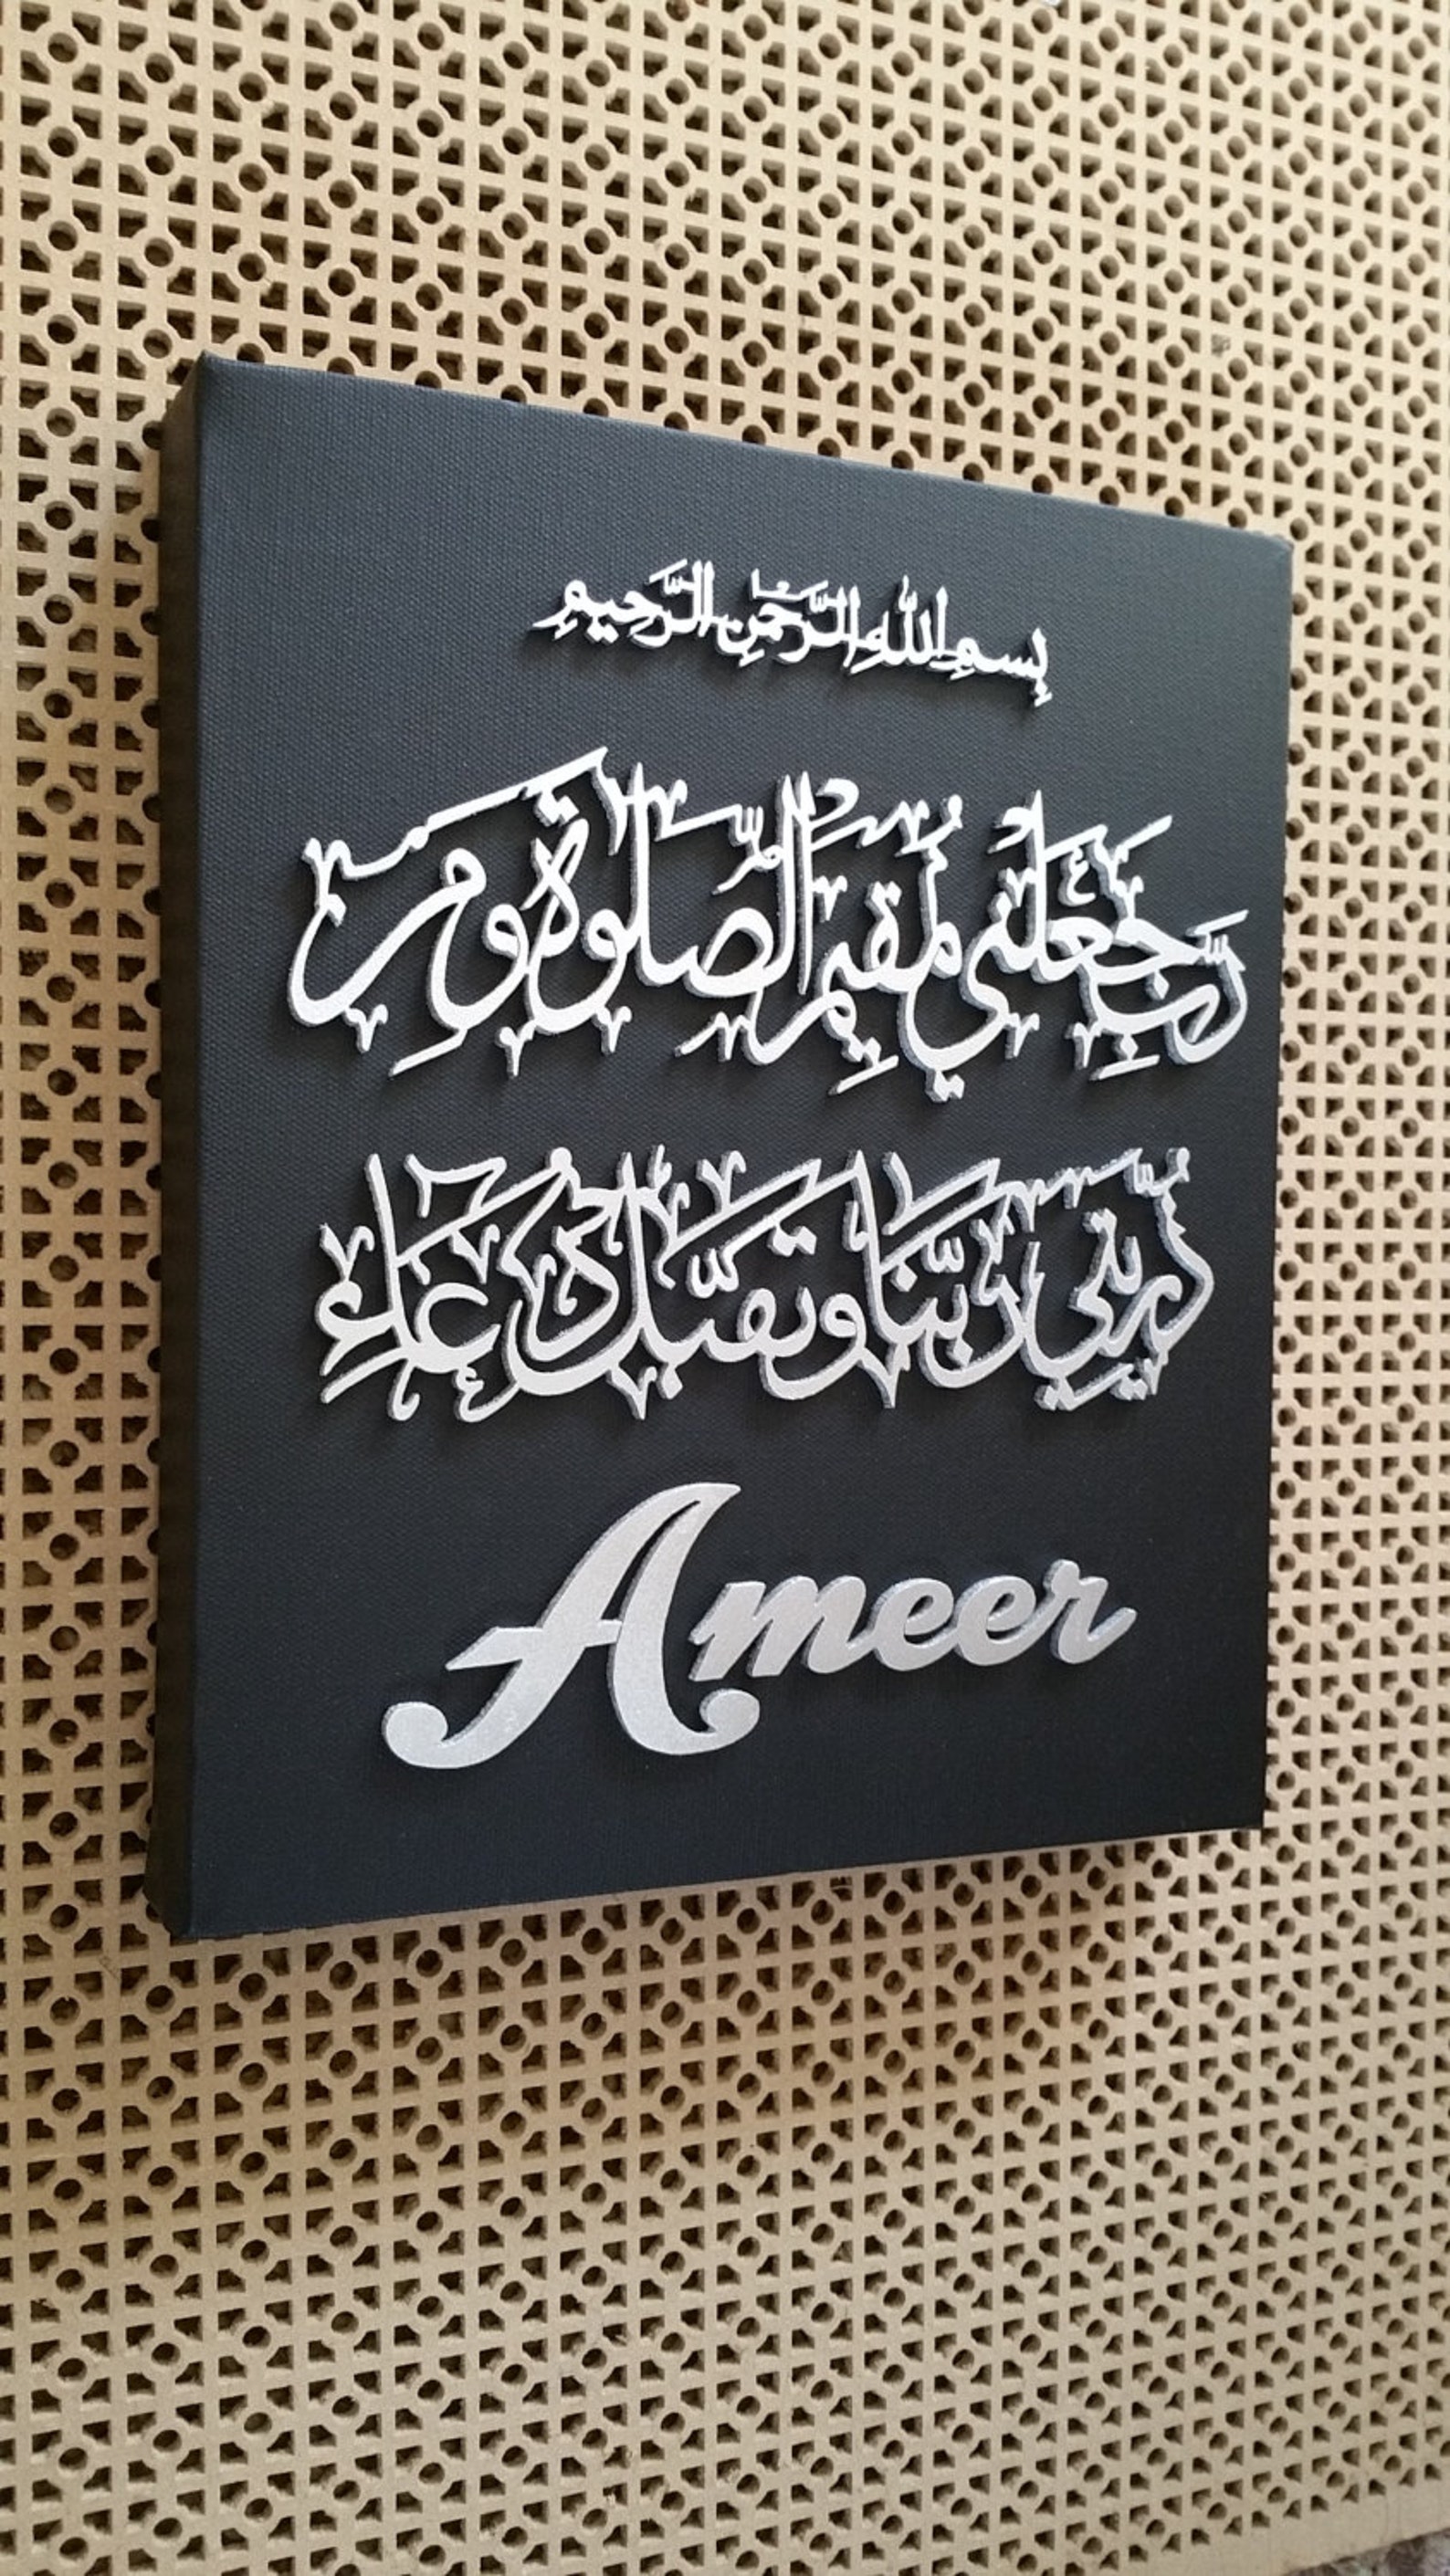 بِسْمِ اللهِ الرَّحْمٰنِ الرَّحِيمِ
رَبِّ اجْعَلْنِي مُقِيمَ الصَّلٰوةِ وَمِنْ
ذُرِّيَّتِي رَبَّنَا وَتَقَبَّلْ دُعَاءِ
Ameer